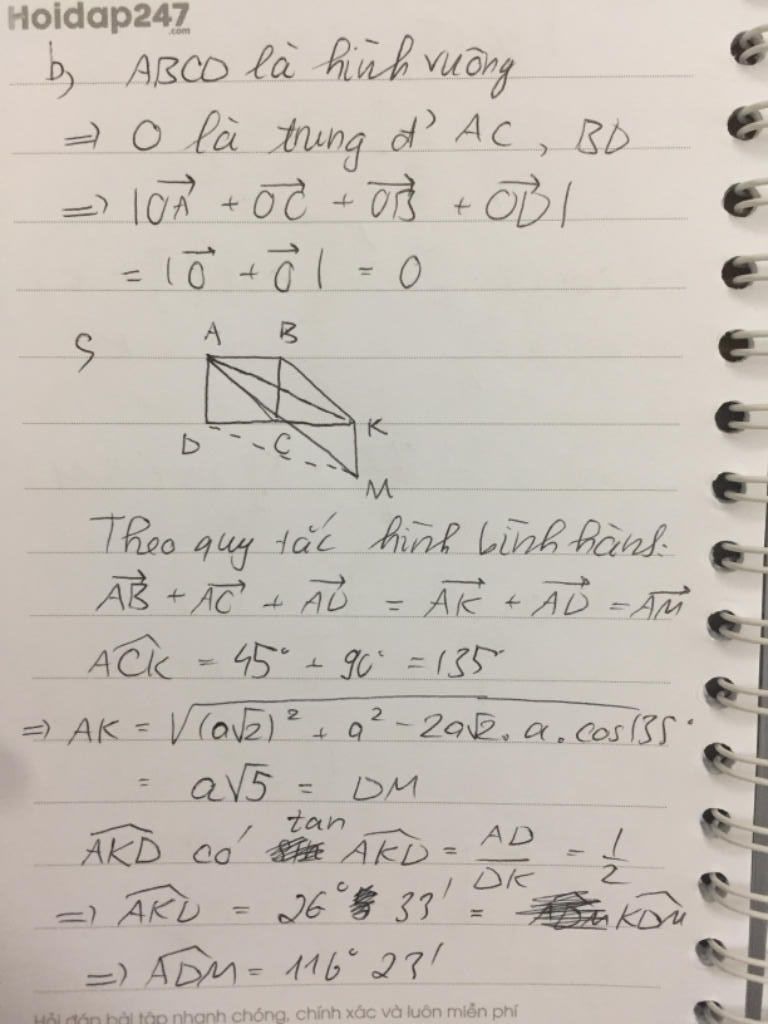 Hoidap247
.com
b, ABCD là hình vuông
=> O là trung đ' AC, BD
=> |OA→ + OC→ + OB→ + OD→|
= |O→ + O→| = 0
A B
D C K
M
Theo quy tắc hình bình hành:
AB→ + AC→ + AD→ = AK→ + AD→ = AM→
ACK^ = 45° + 90° = 135°
=> AK = √((a√2)² + a² - 2a√2 . a . cos135°)
= a√5 = DM
AKD^ có tan AKD^ = AD/DK = 1/2
=> AKD^ = 26° 33' = KDM^
=> ADM^ = 116° 23'
Hỏi đáp bài tập nhanh chóng, chính xác và luôn miễn phí